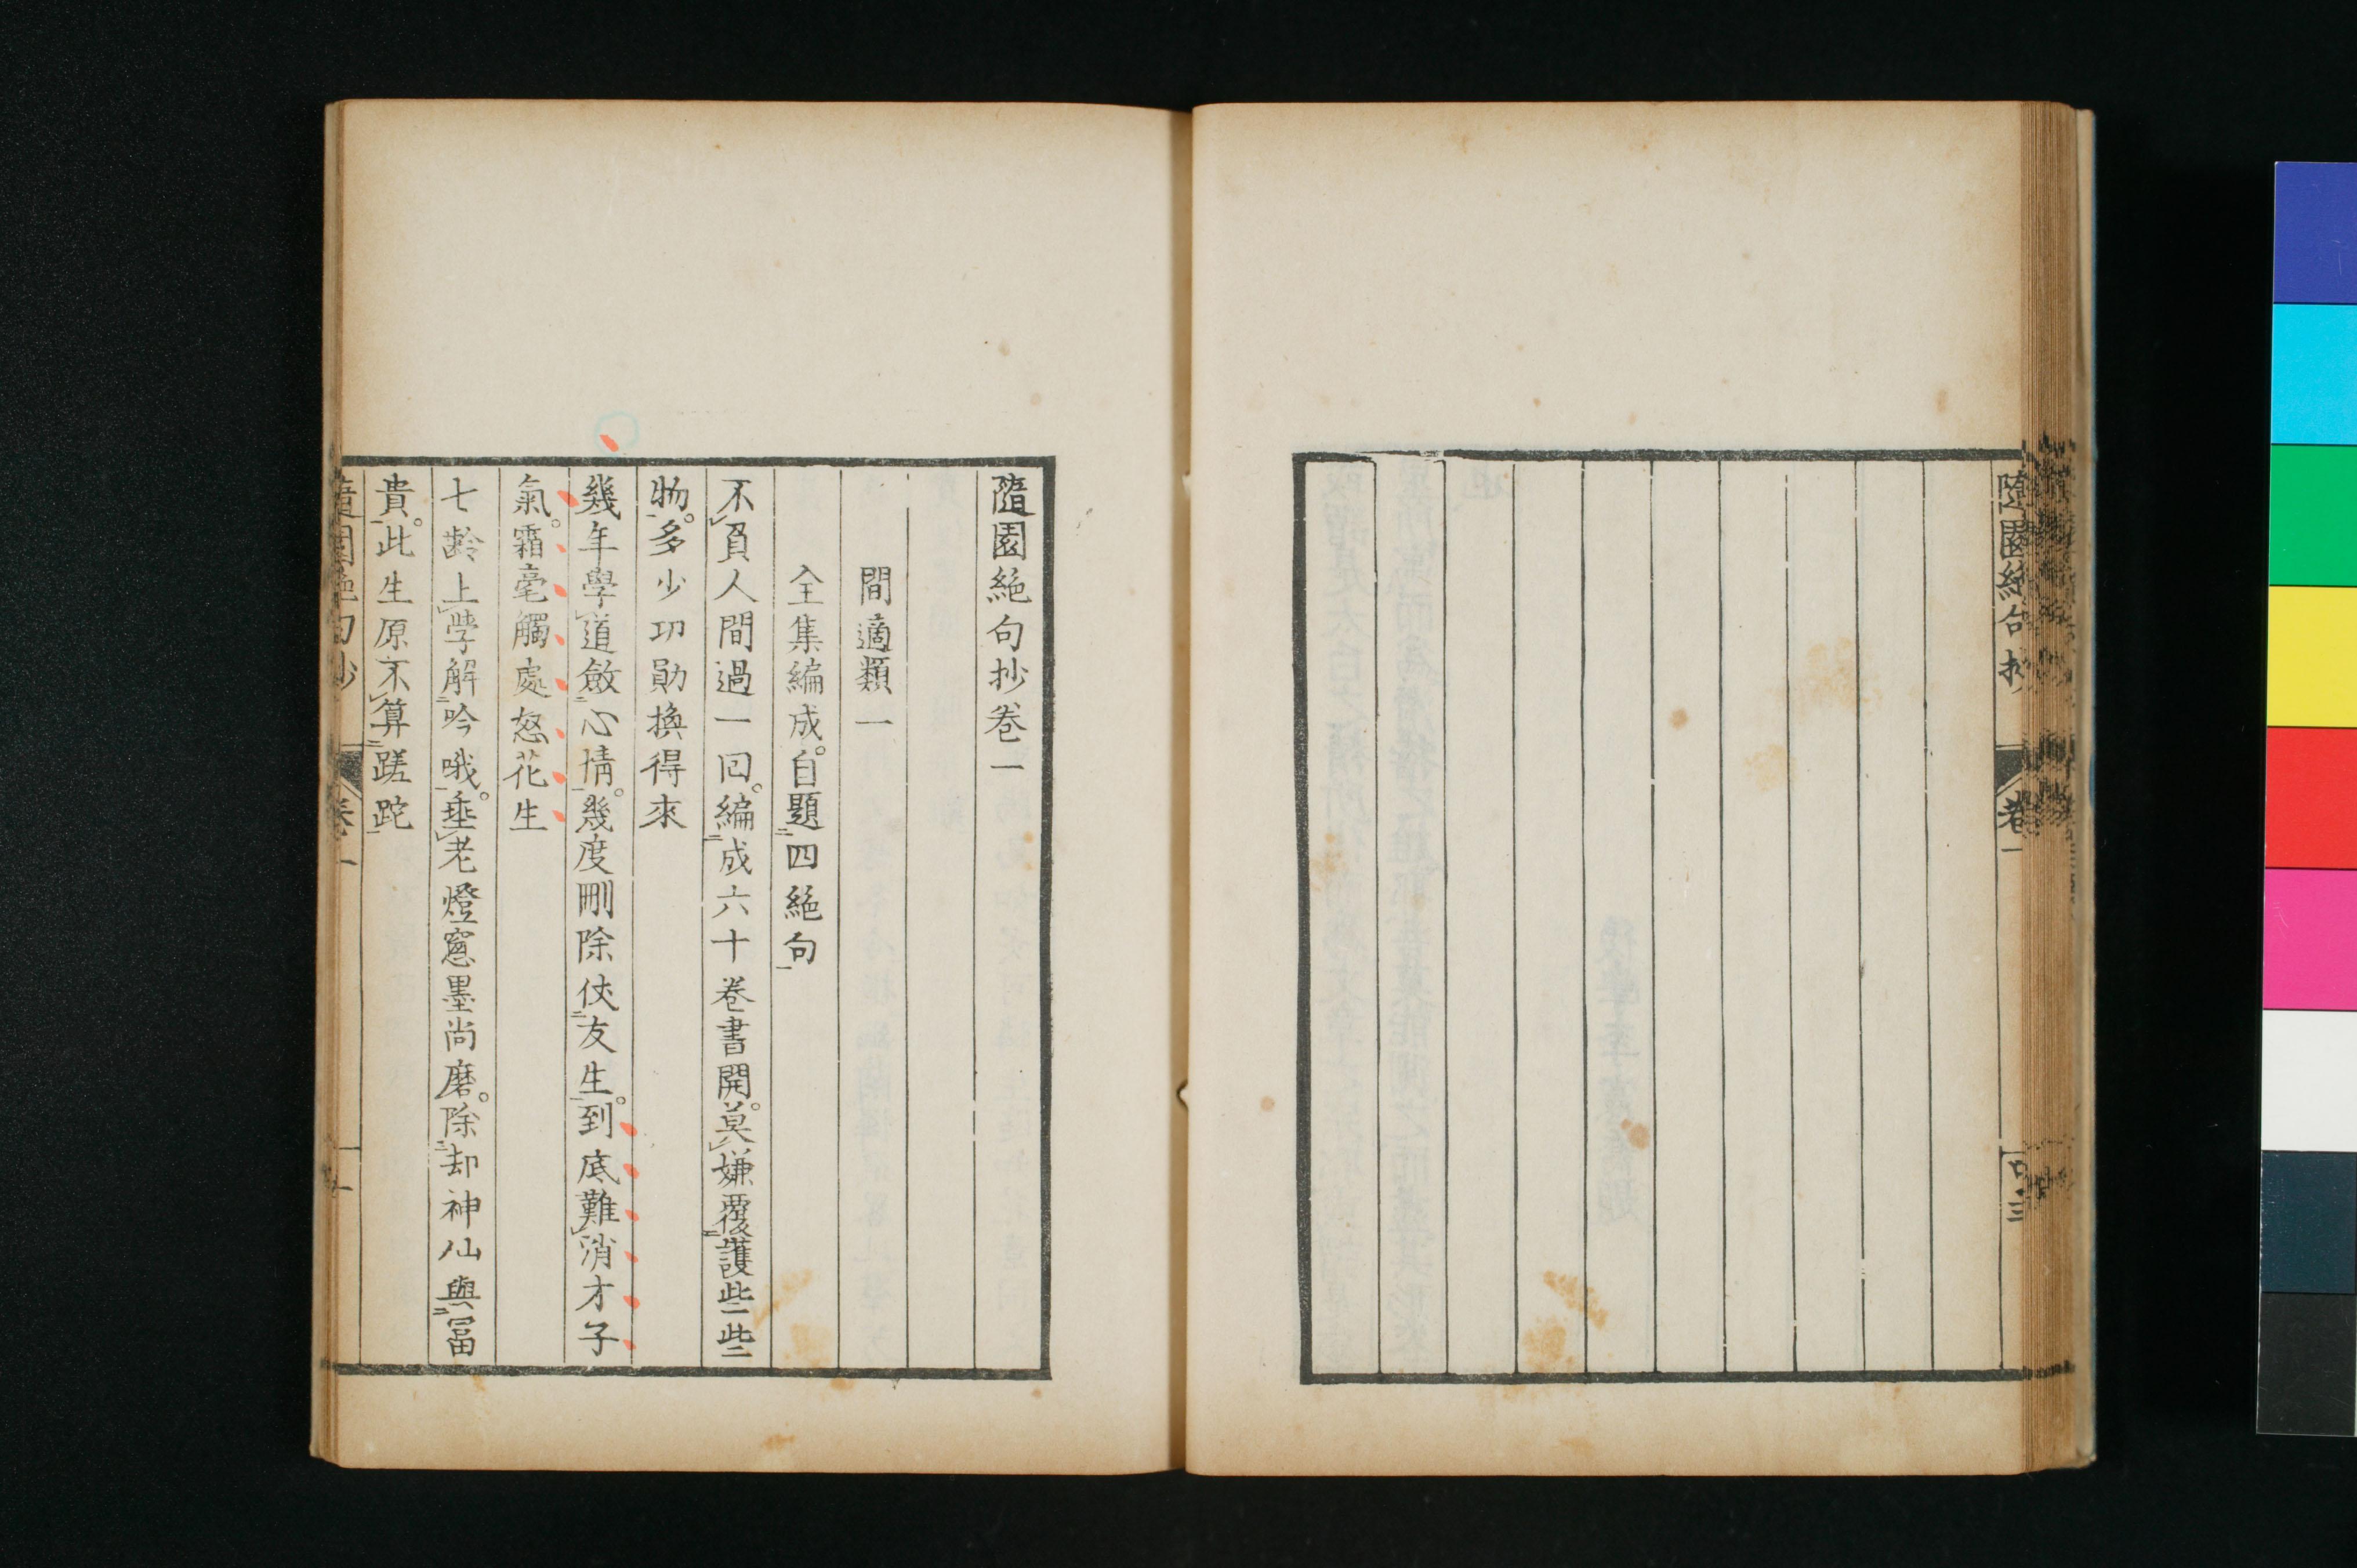 隨園絶句抄
卷一
隨園絶句抄卷一
間適類一
全集編成。自題四絶句
不負人間過一回。編成六十卷書開。莫嫌覆護些些
物。多少功勛換得來
幾年學道斂心情。幾度刪除俠友生。到底難消才子
氣。霜毫觸處怒花生
七齡上學解吟哦。垂老燈窻墨尚磨。除却神仙與冨
貴。此生原不算蹉跎
隨園絶句抄
卷一
一